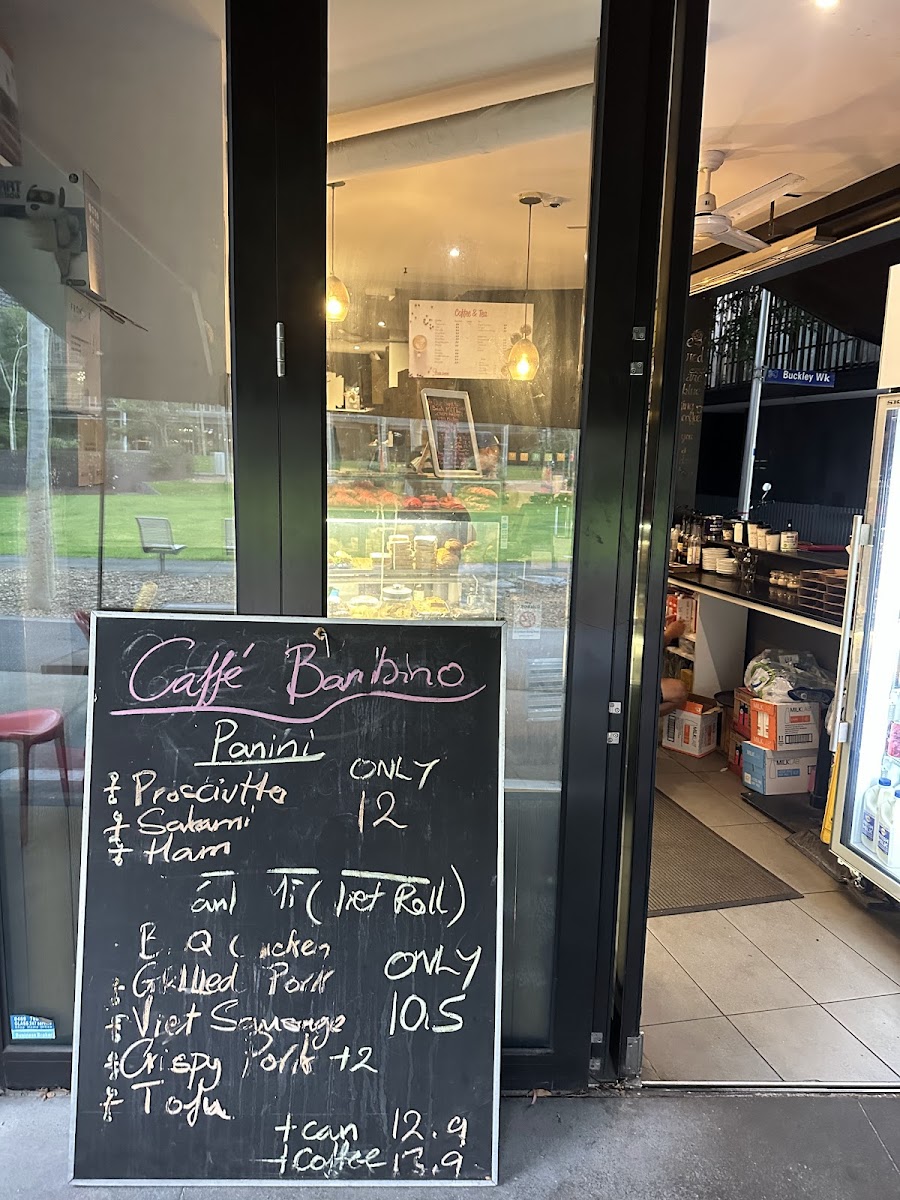 Coffee & Tea
Buckley Wk
Caffé Bambino
Panini
Prosciutto
Salami
Ham
ONLY
12
ánl Tì ( Viet Roll)
B Q C icken
Grilled Pork
Viet Sausange
Crispy Pork +2
Tofu
ONLY
10.5
+can 12.9
+coffee 13.9
MILKLAB